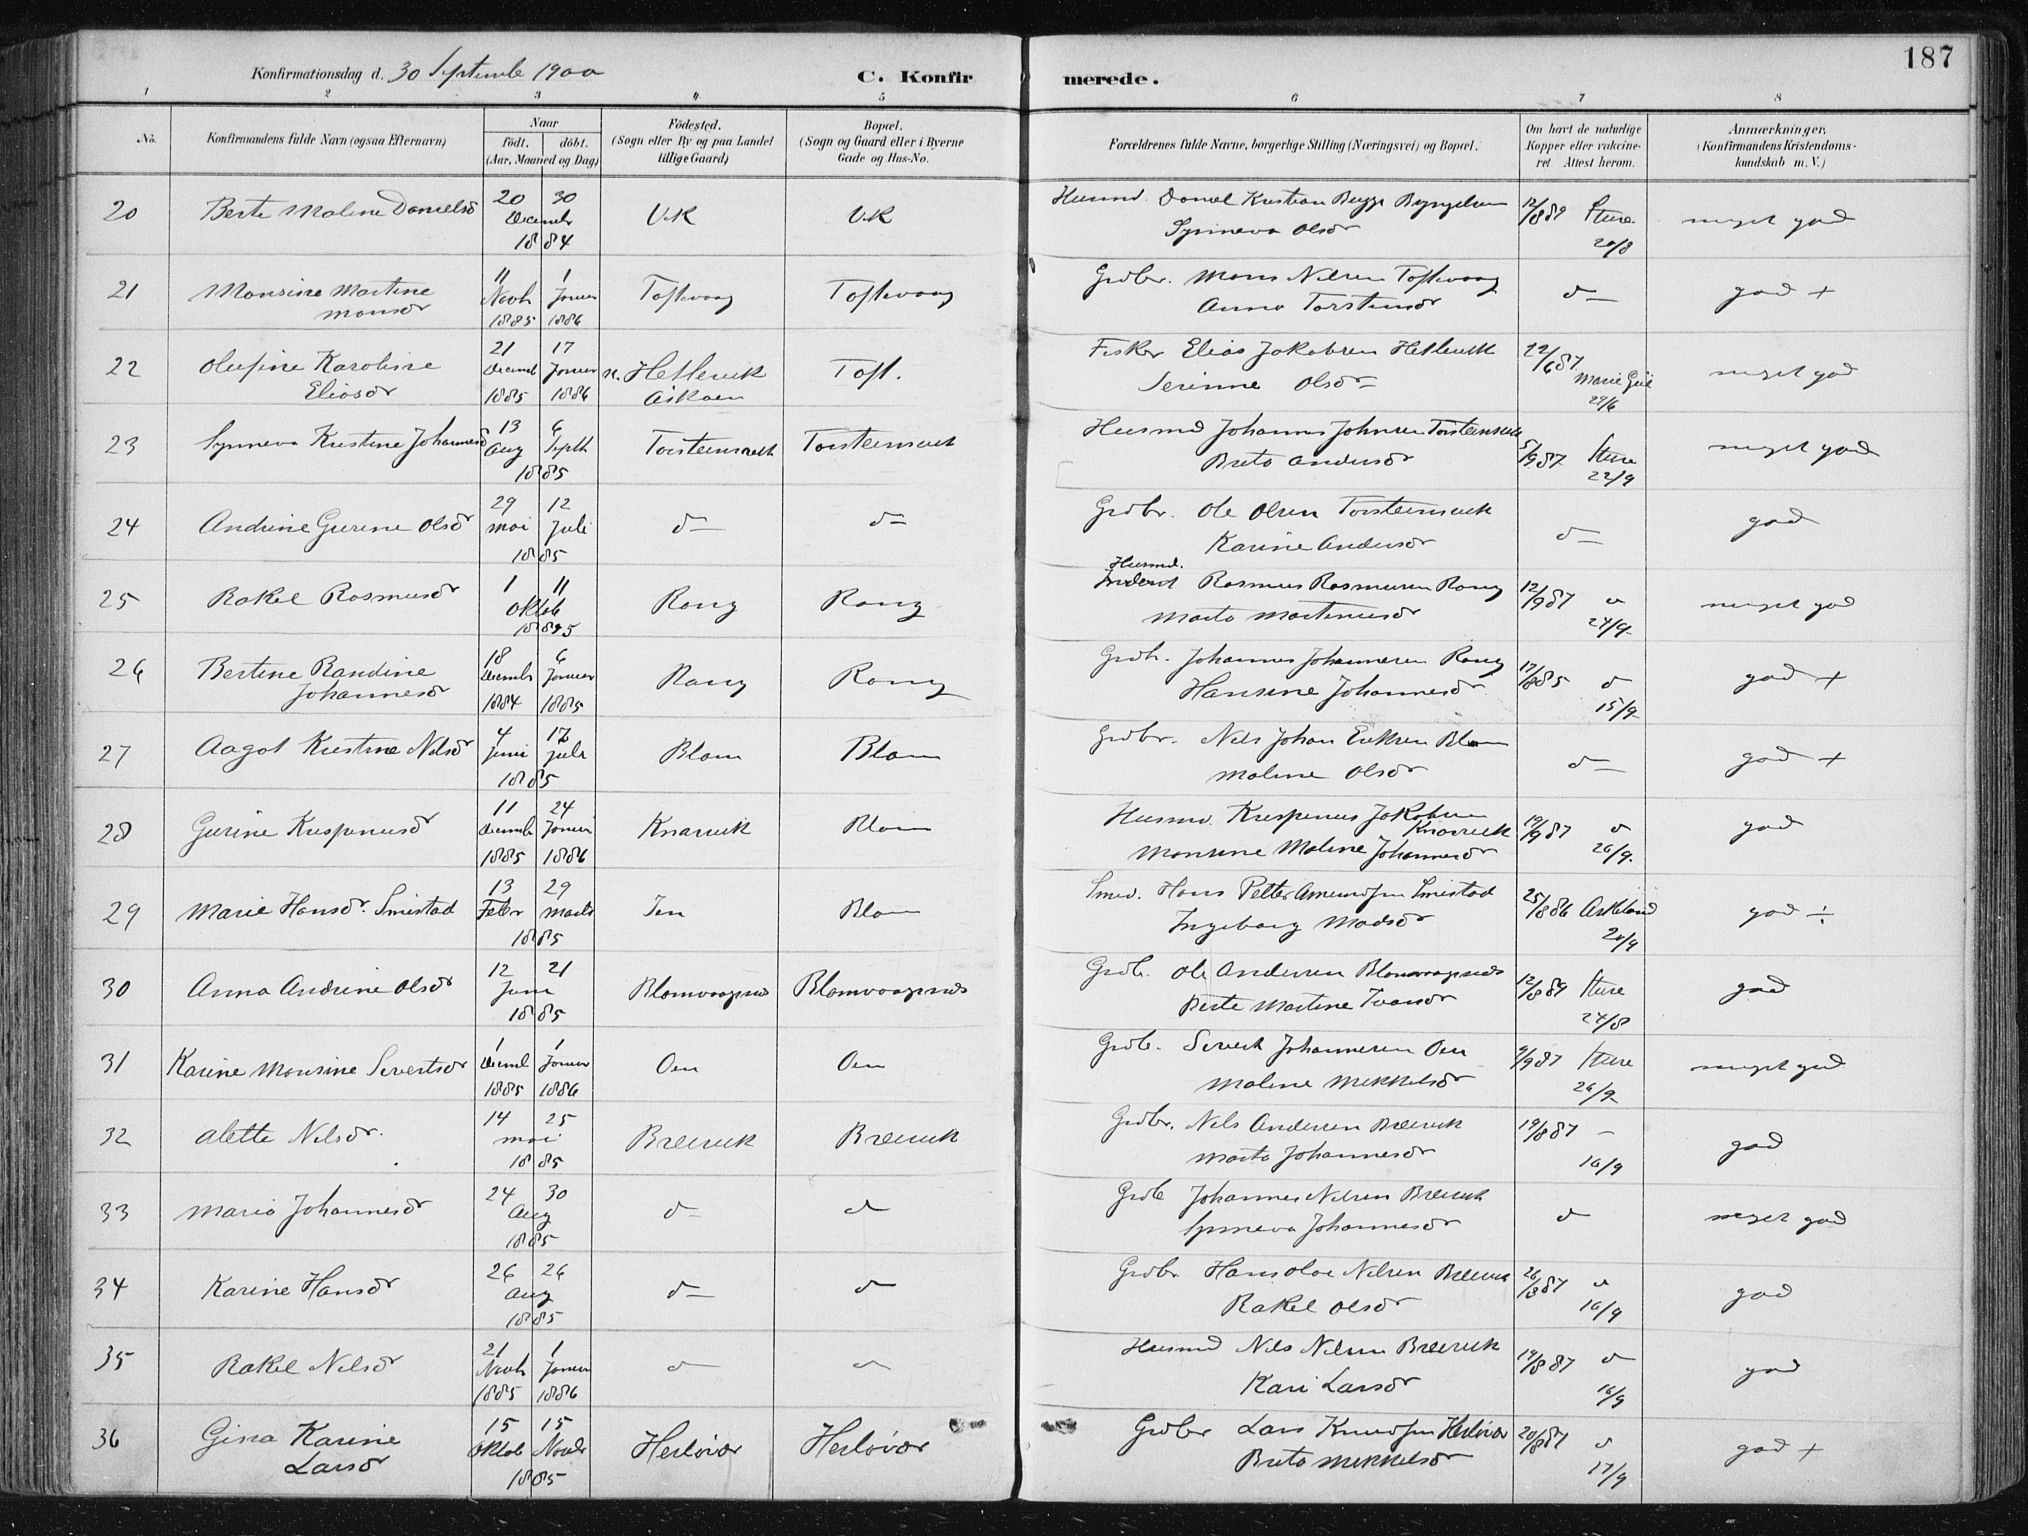 187
Konfirmationsdag d. 30 September 1900 C. Konfirmerede.
1 2 3 4 5 6 7 8
No.
Konfirmandens fulde Navn (ogsaa Efternavn)
Naar
födt. döbt.
(Aar, Maaned og Dag)
Födested.
(Sogn eller By og paa Landet
tillige Gaard)
Bopæl.
(Sogn og Gaard eller i Byerne
Gade og Hus-No.
Forældrenes fulde Navne, borgerlige Stilling (Næringsvei) og Bopæl.
Om havt de naturlige
Kopper eller vakcine-
ret. Attest herom.
Anmærkninger,
(Konfirmandens Kristendoms-
kundskab m. V.)
20 Berte Malene Danielsd 20 30 Decembr 1884 Vik Vik Husmd. Daniel Kristian
Synneva Olsdr 12/8 89 Sture 20/8 meget god
21 Monsine Martine
Monsdr 11 Novbr 1885 1 Januar 1886 Toftevaag Toftevaag Grdbr. Mons Nilsen Toftevaag
Anna Torsteinsdr d— god +
22 Olufine Karoline
Eliasdr 21 Decemb 1885 17 Januar 1886 n. Hetlevik
Askøen Toft. Fisker Elias Jakobsen Hetlevik
Serinne Olsdr 22/6 87 29/6 meget god
23 Synneva Kristine Johannesd 13 Aug 6 Septb 1885 Torsteinsvik Torsteinsvik Husmd Johannes Johnsen Torsteinsvik
Brita Andersdr 5/9 87 Sture 22/9 meget god
24 Andrine Gurine Olsdr 29 Mai 12 Juli 1885 d— d— Grdbr. Ole Olsen Torsteinsvik
Karine Andersdr d— god
25 Rakel Rasmusdr 1 11 Oktob 1885 Rong Rong Husmd.
Rasmus Rasmusen Rong
Marta Martinusdr 12/9 87 d 24/9 meget god
26 Bertine Randine
Johannesdr 18 Decembr 1884 6 Januar 1885 Rong Rong Grdb. Johannes Johannesen Rong
Hansine Johannesdr 17/8 85 d 15/9 god +
27 Aagot Kristine Nilsdr 4 Juni 12 Juli 1885 Blom Blom Grdbr. Nils Johan Eriksen Blom
Malene Olsdr d— god +
28 Gurine Krispinusdr 11 Decemb 1885 24 Januar 1886 Knarvik Blom Husmd. Krispinus Jakobsen
Knarvik
Monsine Malene Johannesdr 19/9 87 d 26/9 god
29 Marie Hansdr. Smistad 13 Febr 29 Marts 1885 Blom Smed. Hans Petter Amundsen Smistad
Ingeborg Madsdr 25/8 86 Askeland 20/9 god ÷
30 Anna Andrine Olsdr 12 21 Juni 1885 Blomvaagnes Blomvaagnes Grdb. Ole Andersen Blomvaagnes
Berte Martine Ivarsdr 12/8 89 Sture 24/8 god
31 Karine Monsine Sivertsdr 1 Decmb 1885 1 Januar 1886 Oen Oen Grdb. Sivert Johannesen Oen
Malene Mikkelsdr 9/9 87 Sture 26/9 meget god
32 Alette Nilsdr. 14 25 Mai 1885 Breivik Breivik Grdbr. Nils Andersen Breivik
Marta Johannesdr 19/8 87 — 16/9 god
33 Maria Johannesdr 24 30 Aug 1885 d— d Grdb Johannes Nilsen Breivik
Synneva Johannesdr d meget god
34 Karine Hansdr 26 26 Aug 1885 d— d Grdbr. Hans Olai Nilsen Breivik
Rakel Olsdr 26/8 87 d 16/9 god
35 Rakel Nilsdr 21 Novb 1885 1 Januar 1886 d— d Husmd Nils Nilsen Breivik
Kari Larsdr 19/8 87 d 16/9 god
36 Gina Karine
Larsdr 15 Oktob 15 Novbr 1885 Herløvær Herløvær Grdbr Lars Knudsen Herløvær
Brita Mikkelsdr 20/8 87 d 17/9 god +